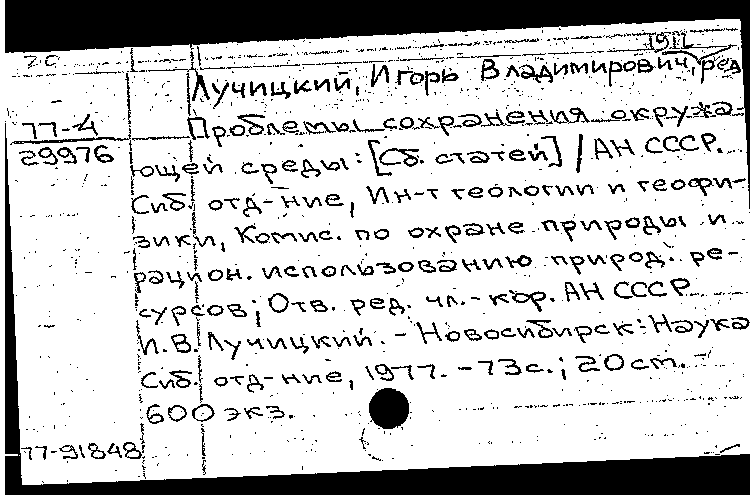 20
1912
Лучицкий, Игорь Владимирович, ред
77-4
29976
Проблемы сохранения окружа-
ющей среды: [Сб. статей] / АН СССР.
Сиб. отд-ние, Ин-т геологии и геофи-
зики, Комис. по охране природы и
рацион. использованию природ. ре-
сурсов; Отв. ред. чл.-кор. АН СССР
И.В. Лучицкий. - Новосибирск: Наука
Сиб. отд-ние, 1977. - 73 с.; 20 см. -
600 экз.
77-91848